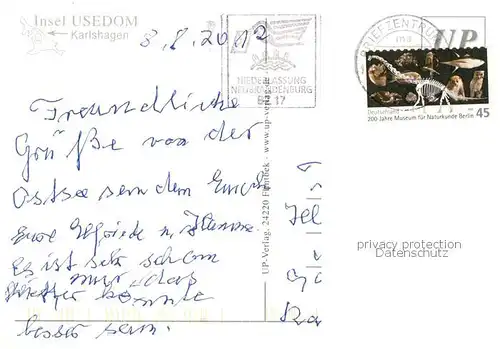 Insel USEDOM
Karlshagen
3.8.2012
NIEDERLASSUNG
NEUBRANDENBURG
BZ 17
BRIEFZENTRUM
UP
Deutschland
45
200 Jahre Museum für Naturkunde Berlin
Freundliche
Grüße von der
Ostsee senden Euch
Eure
Es ist sehr schön
nur das
Wetter könnte
besser sein.
UP-Verlag, 24220 Flintbek - www.up-verlag.de
privacy protection
Datenschutz